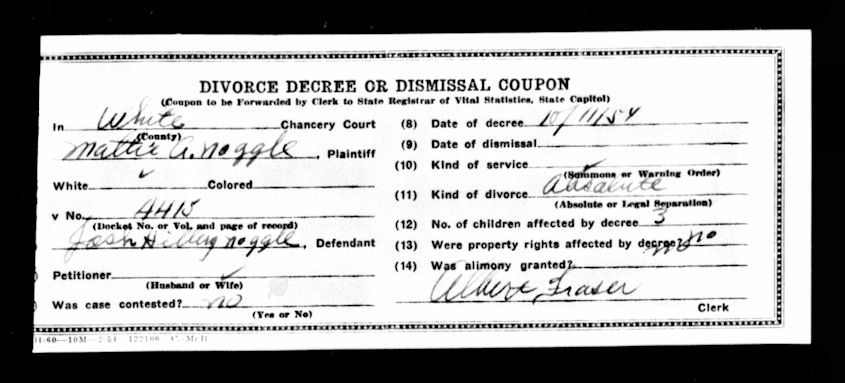 DIVORCE DECREE OR DISMISSAL COUPON
(Coupon to be Forwarded by Clerk to State Registrar of Vital Statistics, State Capitol)
In White Chancery Court
(County)
Mattie A. Noggle, Plaintiff
White ✓ Colored
v No. 4415
(Docket No. or Vol. and page of record)
Josh Noggle, Defendant
Petitioner ✓
(Husband or Wife)
Was case contested? no
(Yes or No)
(8) Date of decree 10/11/54
(9) Date of dismissal
(10) Kind of service ✓
(Summons or Warning Order)
(11) Kind of divorce Absolute
(Absolute or Legal Separation)
(12) No. of children affected by decree 3
(13) Were property rights affected by decree? no
(14) Was alimony granted? no
Albert Fraser
Clerk
H-60—10M—2-54—122106—C-McII